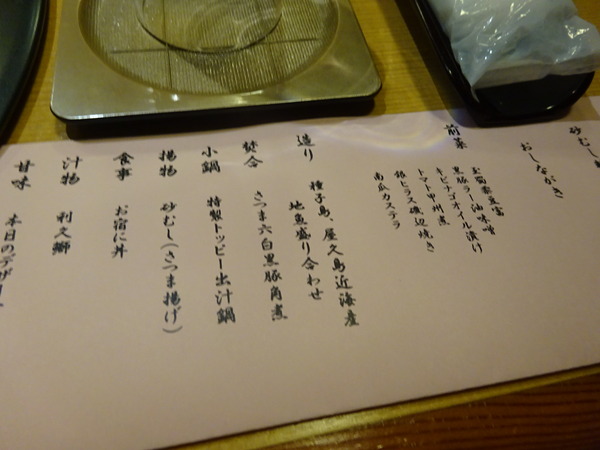 砂むし
おしながき
前菜
玉蜀黍豆富
黒豚ラー油味噌
キビナゴオイル漬け
トマト甲州煮
銀ヒラス磯辺焼き
南瓜カステラ
造り 種子島、屋久島近海産
地魚盛り合わせ
焚合 さつま六白黒豚角煮
小鍋 特製トッピー出汁鍋
揚物 砂むし(さつま揚げ)
食事 お宿に丼
汁物 利久郷
甘味 本日のデザート